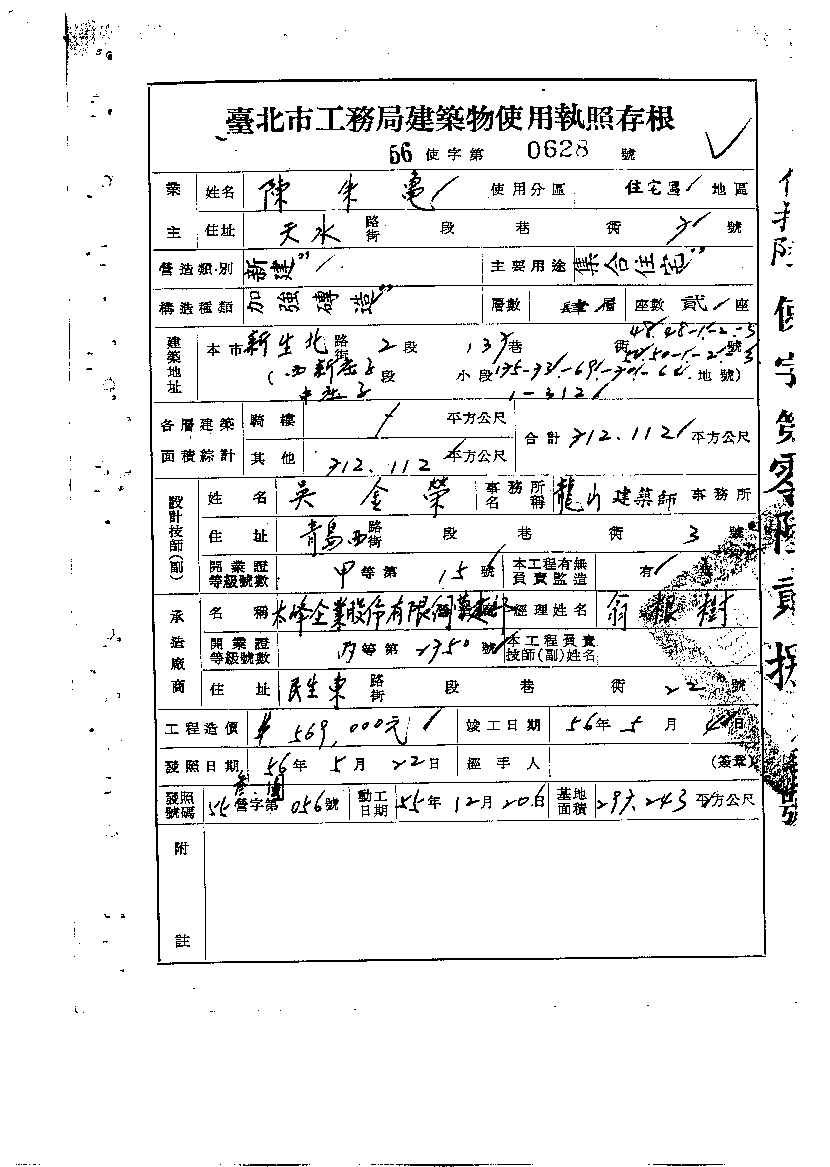 臺北市工務局建築物使用執照存根
56 使字第 0628 號
業主 姓名 陳朱亀 使用分區 住宅區 地區
住址 天水 路街 段 巷 衖 號
營造類別 新建 主要用途 集合住宅
構造種類 加強磚造 層數 肆層 座數 貳座
建築地址 本市 新生北 路街 2段 137巷 衖 48.48-1-2-3 號
50-1-2-3
(西新庄子 段 小段 175-73 -69 -70 地號)
中庄子 1-312
各層建築面積綜計 騎樓 平方公尺 合計 712.112 平方公尺
其他 712.112 平方公尺
設計技師(副) 姓名 吳金榮 事務所名稱 龍山建築師 事務所
住址 青島西 路街 段 巷 衖 3 號
開業證等級號數 甲等第 15 號 本工程有無負責監造 有
承造廠商 名稱 木峰企業股份有限 經理姓名 翁銀樹
開業證等級號數 丙等第 2750 號 本工程負責技師(副)姓名
住址 民生東 路街 段 巷 衖 22 號
工程造價 $569,000元 竣工日期 56年5月4日
發照日期 56年5月22日 經手人 (簽章)
發照號碼 55 營字第 056 號 動工日期 55年12月20日 基地面積 297.243 平方公尺
附註
使字第零陸貳捌號